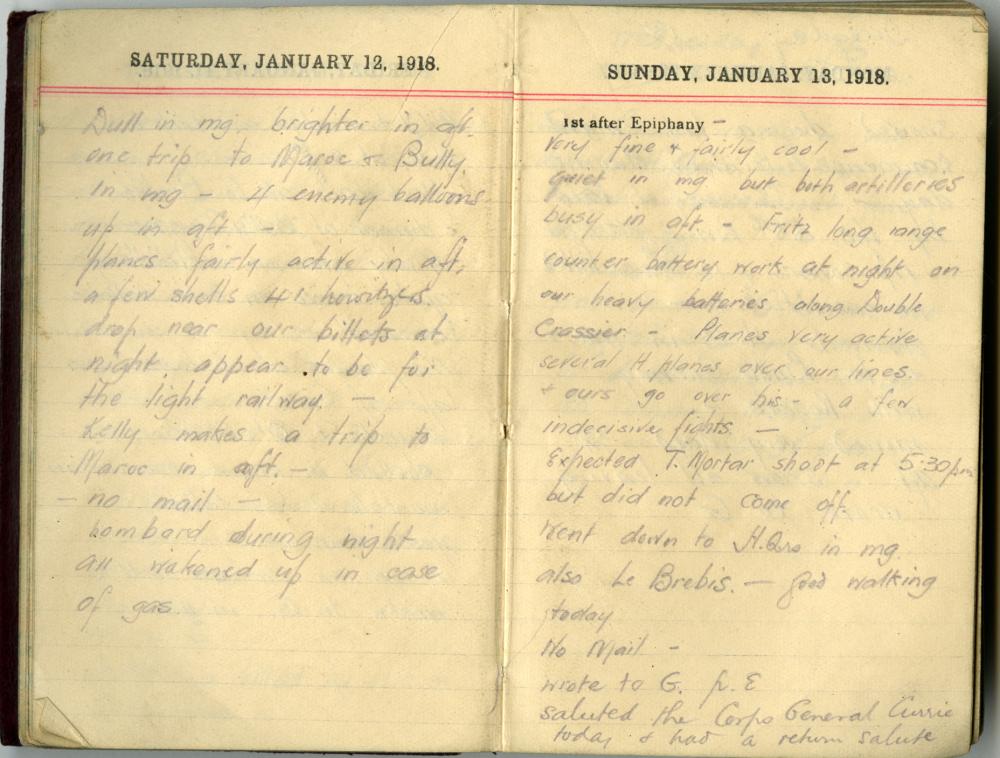 SATURDAY, JANUARY 12, 1918.
Dull in mg brighter in aft.
one trip to Maroc & Bully
in mg - 4 enemy balloons
up in aft -
planes fairly active in aft,
a few shells 4.1 howitzers
drop near our billets at
night. appear to be for
the light railway. -
Kelly makes a trip to
Maroc in aft. -
- no mail -
bombard during night
all wakened up in case
of gas.
SUNDAY, JANUARY 13, 1918.
1st after Epiphany -
Very fine & fairly cool -
quiet in mg but both artilleries
busy in aft. - Fritz long range
counter battery work at night on
our heavy batteries along Double
Crassier - Planes very active
several H. planes over our lines.
& ours go over his - a few
indecisive fights. -
Expected T. Mortar shoot at 5:30 pm
but did not come off.
Went down to H.Qrs in mg.
also Le Brebis. - good walking
today
No Mail -
wrote to G. E
saluted the Corps General Currie
today & had a return salute